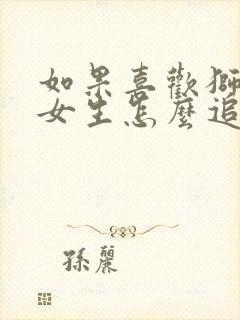 如果喜歡獅
女生怎麼追
孫麗